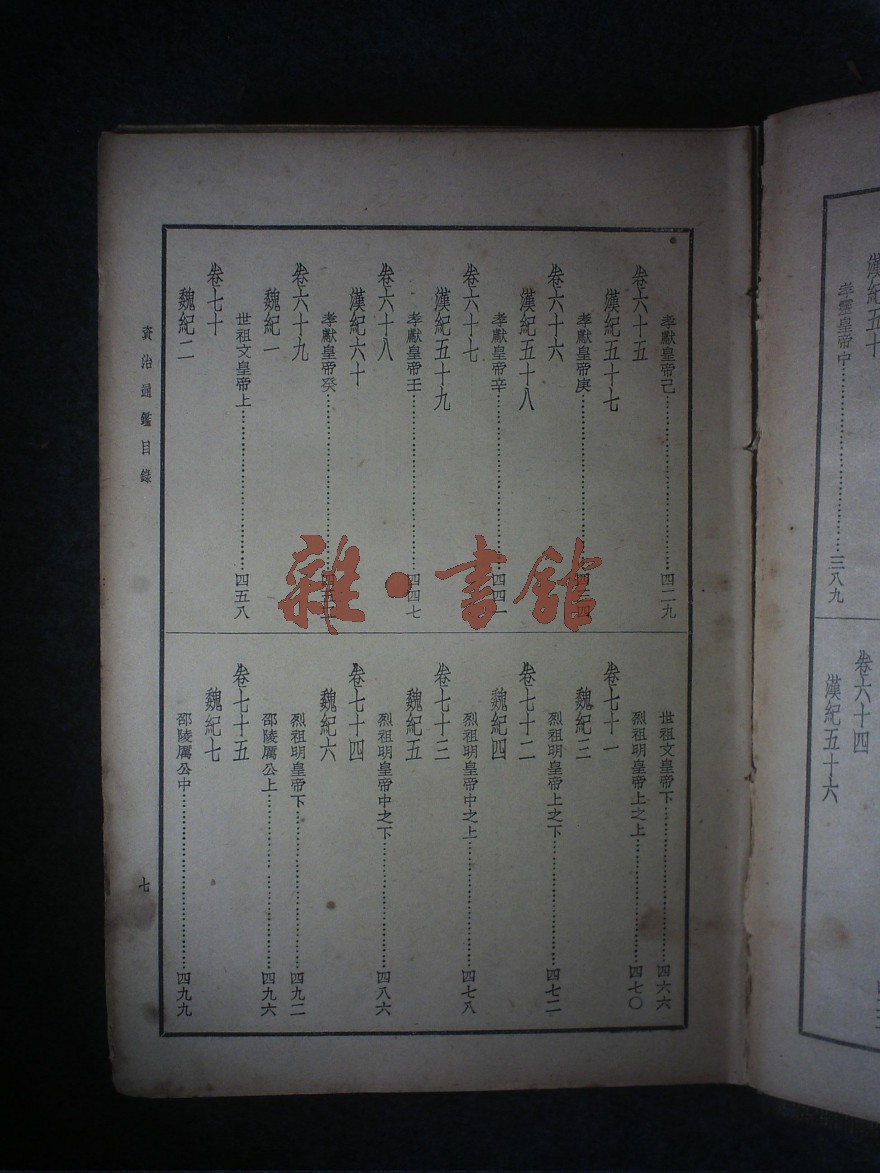 漢紀五十
孝靈皇帝中……三八九
卷六十四
漢紀五十六
孝獻皇帝己……四二九
卷六十五
漢紀五十七
孝獻皇帝庚……四
卷六十六
漢紀五十八
孝獻皇帝辛……四四
卷六十七
漢紀五十九
孝獻皇帝壬……四四七
卷六十八
漢紀六十
孝獻皇帝癸……四五
卷六十九
魏紀一
世祖文皇帝上……四五八
卷七十
魏紀二
世祖文皇帝下……四六六
烈祖明皇帝上之上……四七〇
卷七十一
魏紀三
烈祖明皇帝上之下……四七二
卷七十二
魏紀四
烈祖明皇帝中之上……四七八
卷七十三
魏紀五
烈祖明皇帝中之下……四八六
卷七十四
魏紀六
烈祖明皇帝下……四九二
邵陵厲公上……四九六
卷七十五
魏紀七
邵陵厲公中……四九九
資治通鑑目錄
七
雜·書館